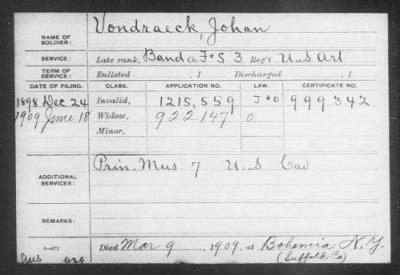 NAME OF SOLDIER: Vondraeck, Johan
SERVICE: Late rank, Band Co. F & S 3, Reg't U.S Art
TERM OF SERVICE: Enlisted , 1 Discharged , 1
DATE OF FILING. CLASS. APPLICATION NO. LAW. CERTIFICATE NO.
1898 Dec 24 Invalid, 1215,559 999342
1909 June 18 Widow, 922147 0
Minor,
ADDITIONAL SERVICES: Prin. Mus. 7 U.S. Cav
REMARKS:
6-672
Died Mar 9, 1909, at Bohemia N.Y.
(Suffolk Co)